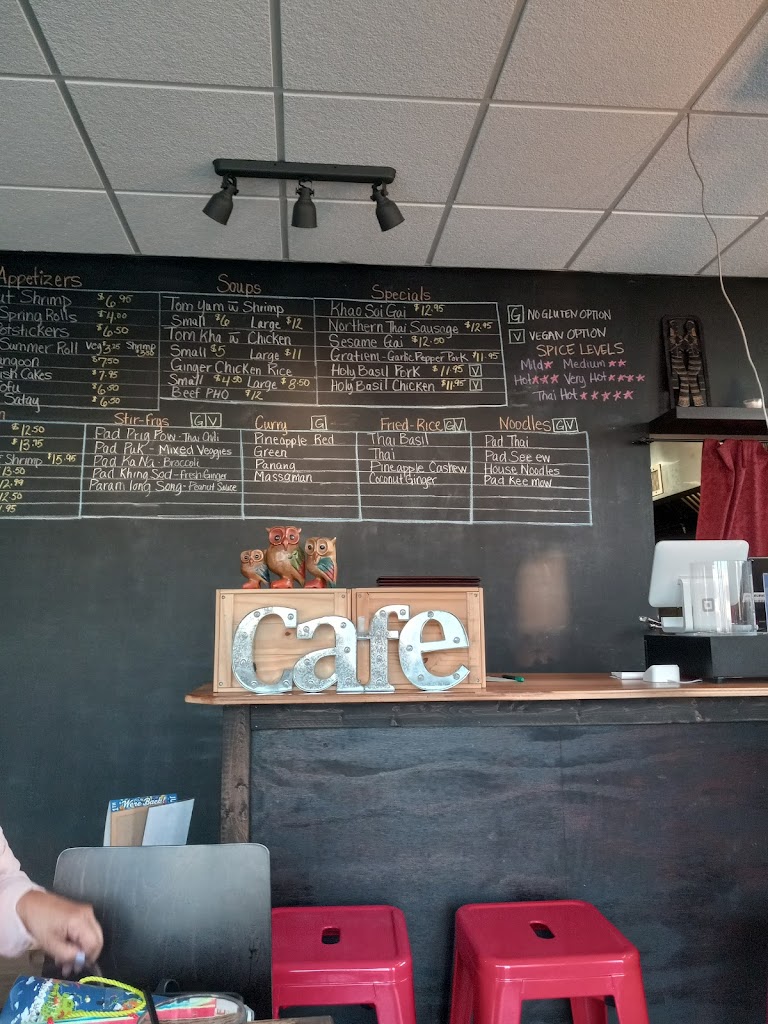 Appetizers
ut Shrimp $6.95
Spring Rolls $4.00
otstickers $6.50
Summer Roll Veg $3.25 Shrimp
ngoon $7.50
ish Cakes $7.95
ofu $6.50
Satay $6.50
Soups
Tom Yum w Shrimp
Small $6 Large $12
Tom Kha w Chicken
Small $5 Large $11
Ginger Chicken Rice
Small $4.50 Large $8.50
Beef PHO $12
Specials
Khao Soi Gai $12.95
Northern Thai Sausage $12.95
Sesame Gai $12.50
Gratiem - Garlic Pepper Pork $11.95
Holy Basil Pork $11.95 V
Holy Basil Chicken $11.95 V
G NO GLUTEN OPTION
V VEGAN OPTION
SPICE LEVELS
Mild★ Medium ★★
Hot★★★ Very Hot★★★★
Thai Hot ★★★★★
$12.50
$13.95
f Shrimp $15.95
13.50
12.99
12.50
1.95
Stir-frys G V
Pad Prig Pow - Thai Chili
Pad Puk - Mixed Veggies
Pad Ka Na - Broccoli
Pad Khing Sod - Fresh Ginger
Param long Song - Peanut Sauce
Curry G
Pineapple Red
Green
Panang
Massaman
Fried-Rice G V
Thai Basil
Thai
Pineapple Cashew
Coconut Ginger
Noodles G V
Pad Thai
Pad See ew
House Noodles
Pad Kee maw
Cafe
We're Back!